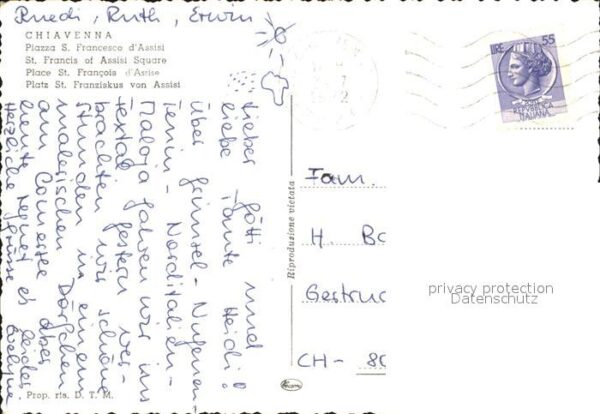 Ruedi, Ruth, Erwin
CHIAVENNA
Piazza S. Francesco d'Assisi
St. Francis of Assisi Square
Place St. François d'Assise
Platz St. Franziskus von Assisi
Lieber Götti und
liebe Tante Heidi!
Über Grimsel - Nufenen -
Tessin - Norditalien -
Maloja fahren wir ins
Gestern ver-
brachten wir schöne
Stunden in einem
malerischen Dörfchen
am Comersee aber
heute regnet es leider
Herzliche Grüsse
Riproduzione vietata
Prop. ris. D. T. M.
LIRE 55
REPUBBLICA
ITALIANA
Fam.
H. Bo
Gestruc
CH - 80
privacy protection
Datenschutz